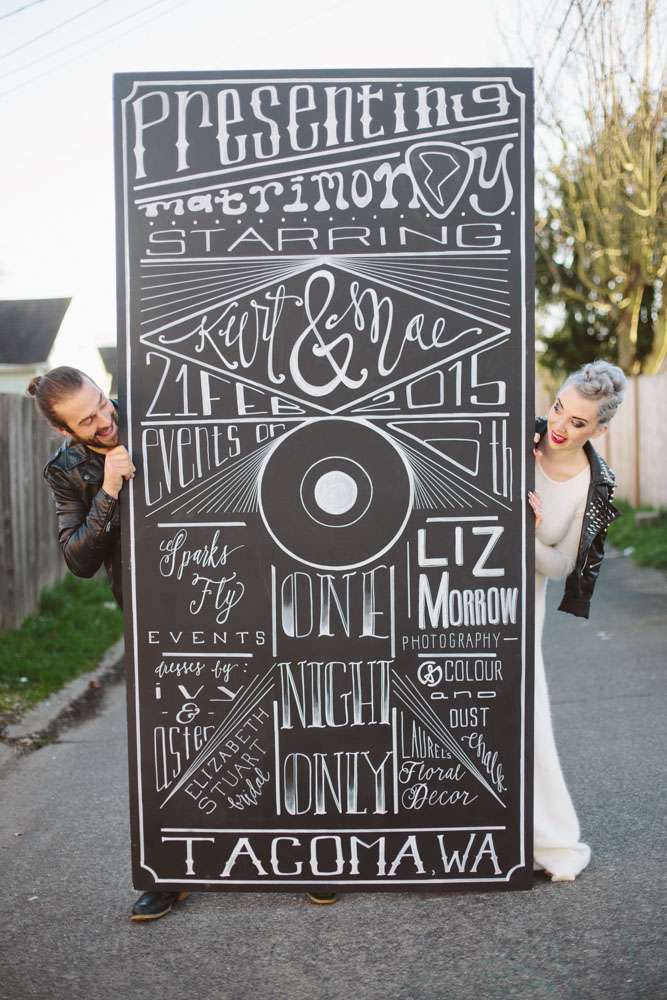 Presenting
matrimony
STARRING
Kurt & Mae
21 FEB 2015
events on 6th
Sparks
Fly
EVENTS
LIZ
MORROW
PHOTOGRAPHY
ONE
NIGHT
ONLY
dresses by:
ivy
&
aster
ELIZABETH
STUART
bridal
& COLOUR
and
DUST
Chalk
LAUREL'S
Floral
Decor
TACOMA, WA